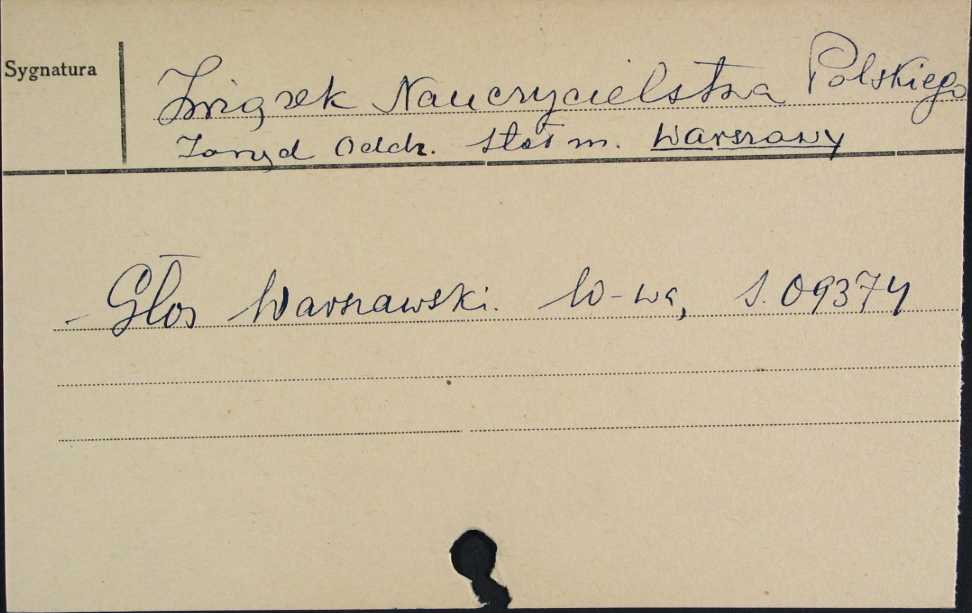 Sygnatura
Związek Nauczycielstwa Polskiego
Zarząd Oddz. stoł m. Warszawy
- Głos Warszawski. W-wa, S. 09374